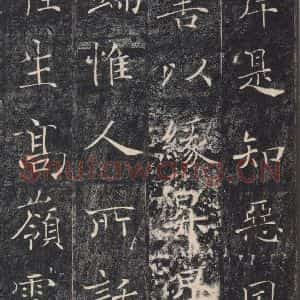 岸是知惡因
善以緣昇昇
端惟人所託
桂生高嶺雲
Shufawang.CN